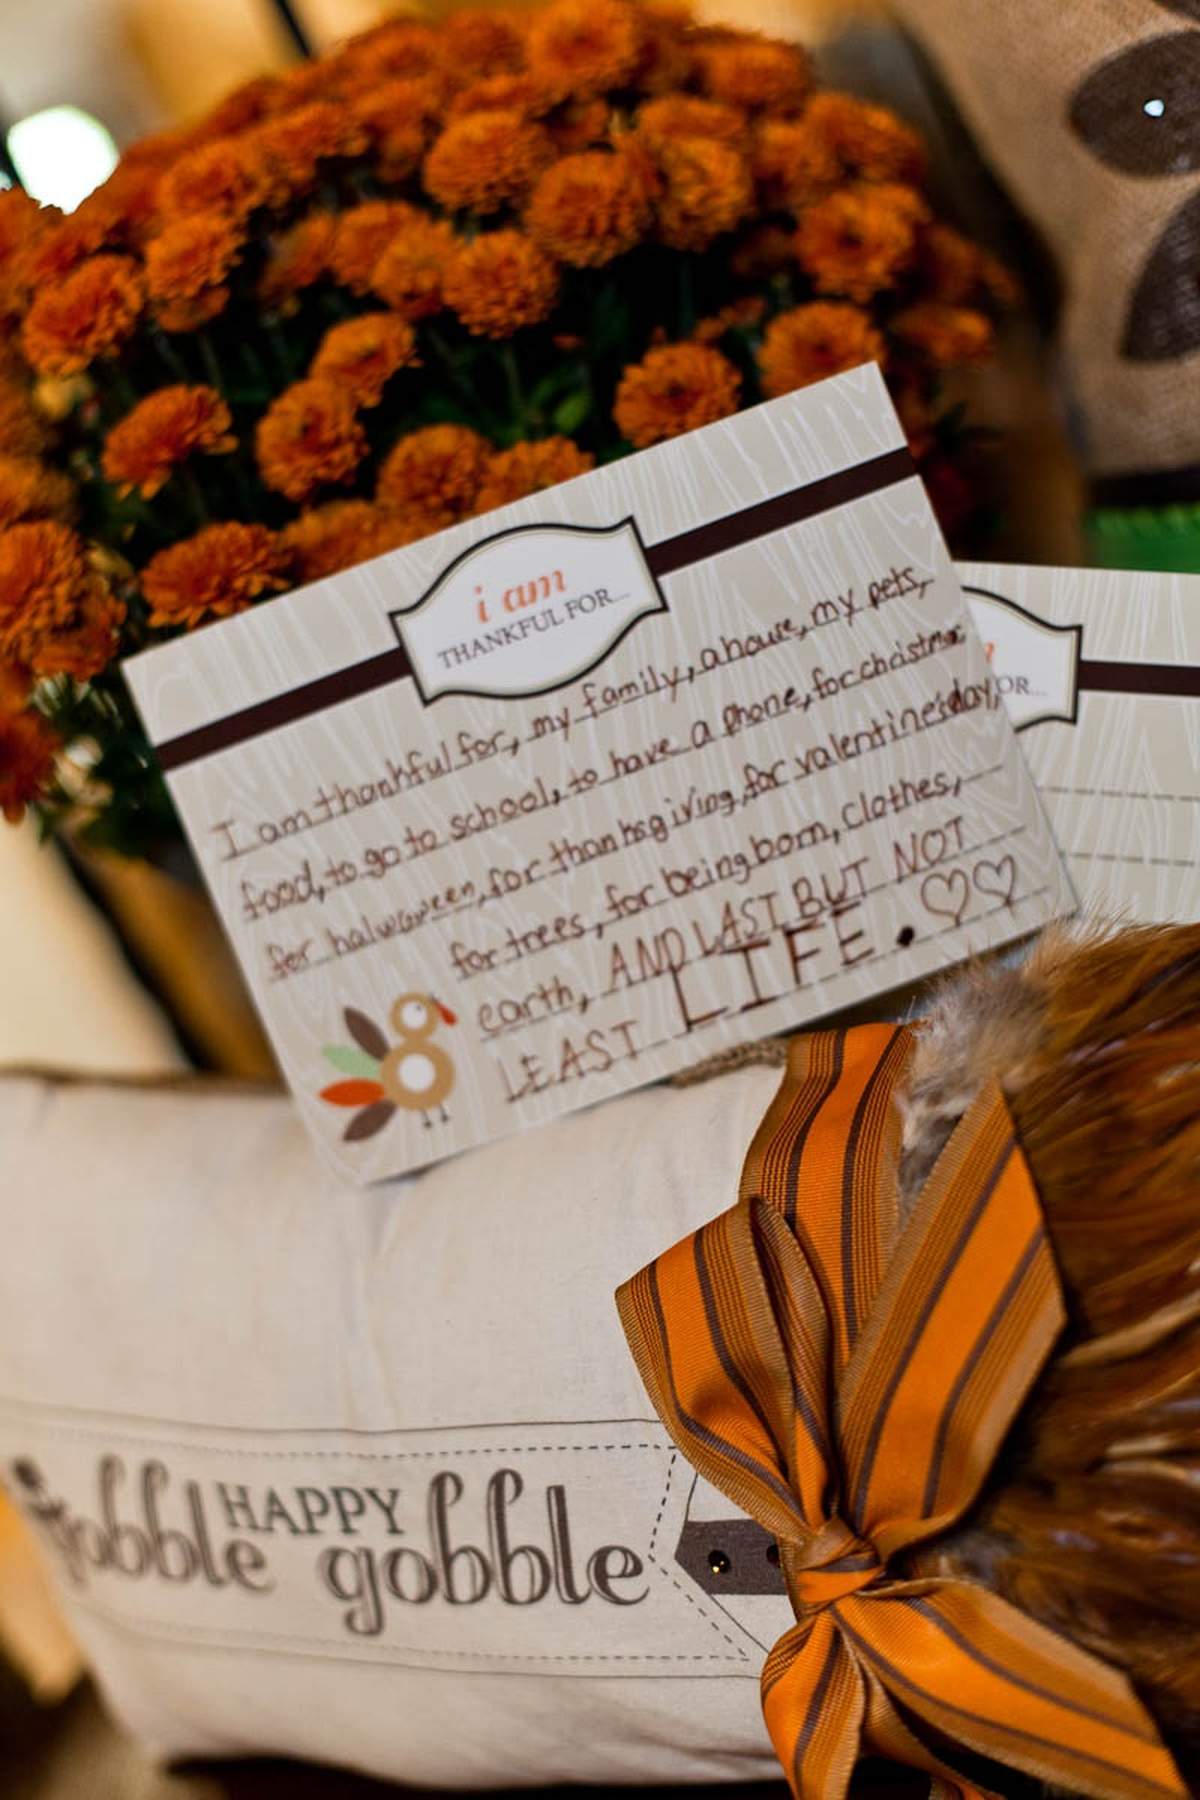 i am
THANKFUL FOR...
I am thankful for, my family, a house, my pets,
food, to go to school, to have a phone, for christmas
for halwoween, for thanksgiving, for valentine's day,
for trees, for being born, clothes,
earth, AND LAST BUT NOT
LEAST LIFE. ♡♡
OR...
HAPPY
gobble gobble